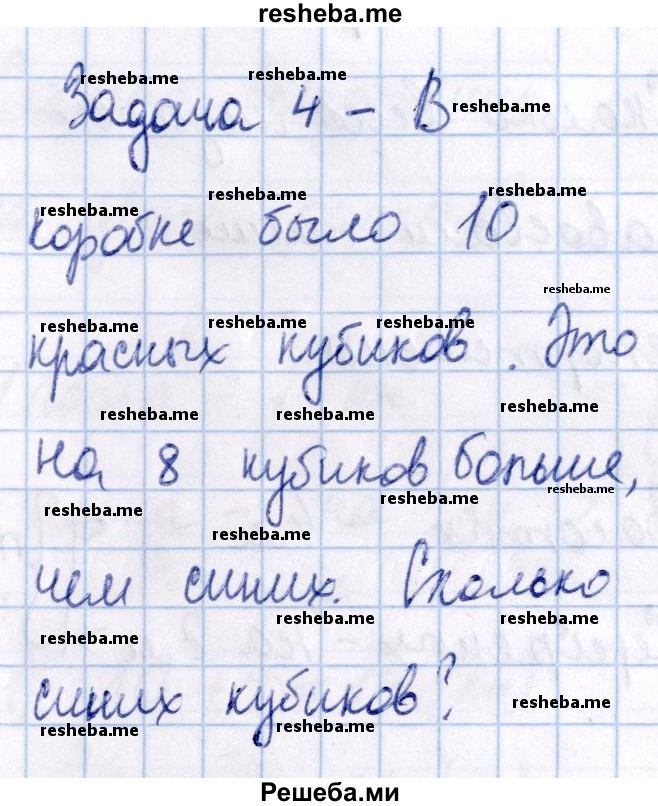 resheba.me
Задача 4 - В
resheba.me resheba.me resheba.me
коробке было 10
resheba.me resheba.me resheba.me
resheba.me
красных кубиков. Это
resheba.me resheba.me resheba.me
resheba.me resheba.me resheba.me
на 8 кубиков больше,
resheba.me resheba.me resheba.me
resheba.me
чем синих. Сколько
resheba.me resheba.me resheba.me
синих кубиков?
resheba.me resheba.me resheba.me
Решеба.ми